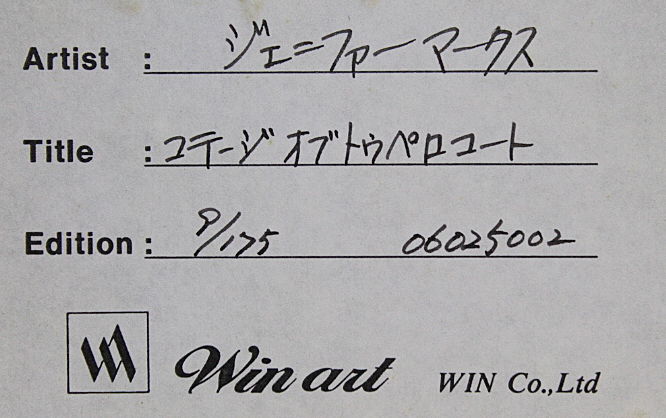 Artist : ジェニファー マークス
Title : コテージ オブ トゥペロコート
Edition : 9/175 06025002
Win art WIN Co.,Ltd